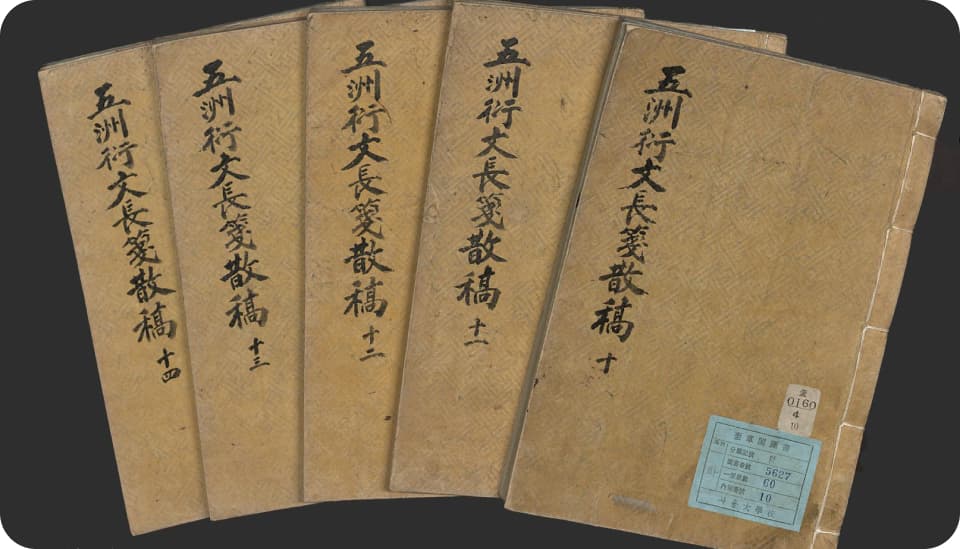 五洲衍文長箋散稿 十四
五洲衍文長箋散稿 十三
五洲衍文長箋散稿 十二
五洲衍文長箋散稿 十一
五洲衍文長箋散稿 十
0160
4
10
奎章閣圖書
圖書番號 5627
60
10
大學校